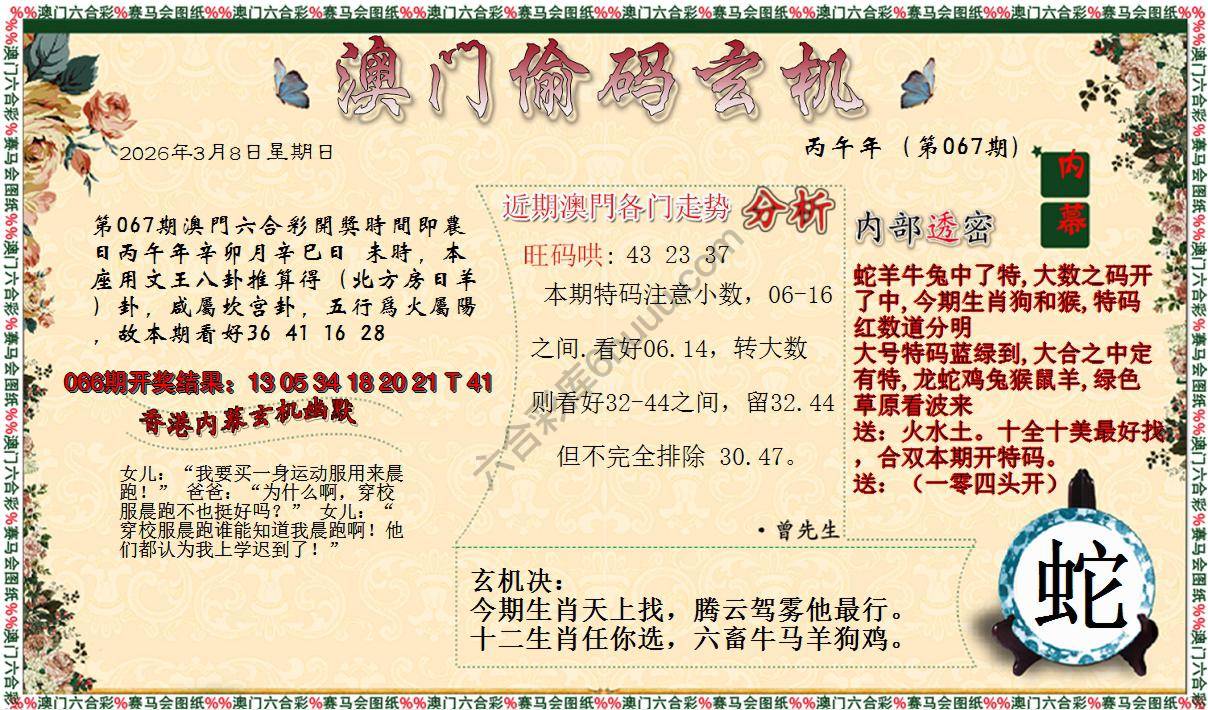 %%澳门六合彩%赛马会图纸%%澳门六合彩%赛马会图纸%%澳门六合彩%赛马会图纸%%澳门六合彩%赛马会图纸%%澳门六合彩%赛马会图纸%%澳门六合彩%赛马会图纸%%
澳门偷码玄机
2026年3月8日星期日
丙午年（第067期）
第067期澳門六合彩開獎時間即農
日丙午年辛卯月辛巳日 未時，本
座用文王八卦推算得（北方房日羊
）卦，咸屬坎宫卦，五行爲火屬陽
，故本期看好36 41 16 28
066期开奖结果：13 05 34 18 20 21 T 41
香港内幕玄机幽默
女儿：“我要买一身运动服用来晨
跑！” 爸爸：“为什么啊，穿校
服晨跑不也挺好吗？” 女儿：“
穿校服晨跑谁能知道我晨跑啊！他
们都认为我上学迟到了！”
近期澳門各门走势 分析
旺码哄：43 23 37
本期特码注意小数，06-16
之间.看好06.14，转大数
则看好32-44之间，留32.44
但不完全排除 30.47。
·曾先生
玄机决：
今期生肖天上找，腾云驾雾他最行。
十二生肖任你选，六畜牛马羊狗鸡。
内部透密
内
幕
蛇羊牛兔中了特,大数之码开
了中,今期生肖狗和猴,特码
红数道分明
大号特码蓝绿到,大合之中定
有特,龙蛇鸡兔猴鼠羊,绿色
草原看波来
送：火水土。十全十美最好找
，合双本期开特码。
送：（一零四头开）
蛇
%%澳门六合彩%赛马会图纸%%澳门六合彩%赛马会图纸%%澳门六合彩%赛马会图纸%%澳门六合彩%赛马会图纸%%澳门六合彩%赛马会图纸%%澳门六合彩%赛马会图纸%%